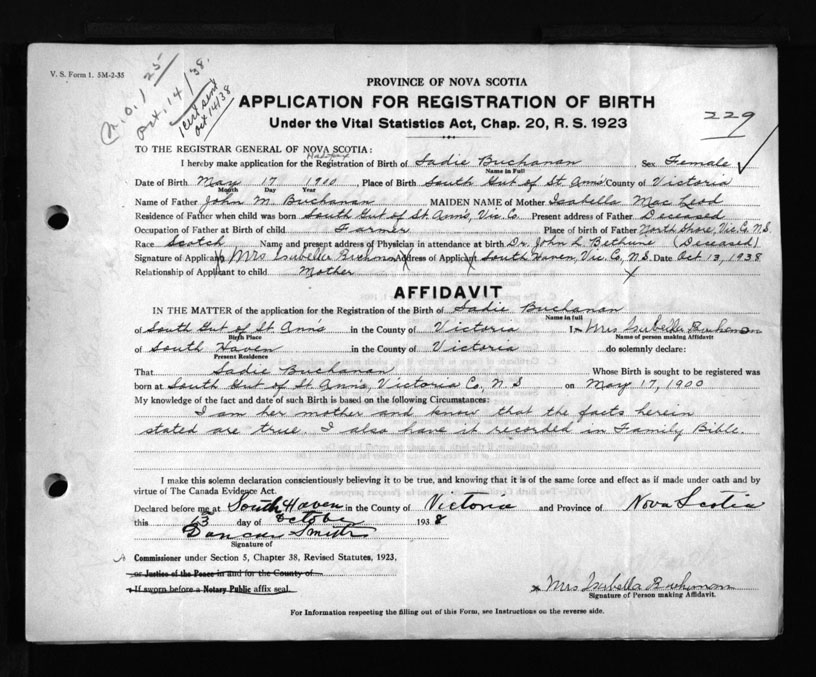 V. S. Form 1. 5M-2-35
M.O. 1 25
Oct. 14/38.
1 cert sent
Oct 14/38
229
PROVINCE OF NOVA SCOTIA
APPLICATION FOR REGISTRATION OF BIRTH
Under the Vital Statistics Act, Chap. 20, R. S. 1923
TO THE REGISTRAR GENERAL OF NOVA SCOTIA:
Halifax
I hereby make application for the Registration of Birth of Sadie Buchanan Sex Female
Name in Full
Date of Birth May 17 1900, Place of Birth South Gut of St. Ann's County of Victoria
Month Day Year
Name of Father John M. Buchanan MAIDEN NAME of Mother Isabella Mac Leod
Residence of Father when child was born South Gut of St. Ann's, Vic. Co. Present address of Father Deceased
Occupation of Father at Birth of child Farmer Place of birth of Father North Shore, Vic. Co. N.S.
Race Scotch Name and present address of Physician in attendance at birth Dr. John L. Bethune (Deceased)
Signature of Applicant Mrs Isabella Address of Applicant South Haven, Vic. Co., N.S. Date Oct 13, 1938
Relationship of Applicant to child Mother
AFFIDAVIT
IN THE MATTER of the application for the Registration of the Birth of Sadie Buchanan
Name in full
of South Gut of St. Anns in the County of Victoria I, Mrs
Birth Place Name of person making Affidavit
of South Haven in the County of Victoria do solemnly declare:
Present Residence
That Sadie Buchanan Whose Birth is sought to be registered was
born at South Gut of St. Ann's, Victoria Co, N. S on May 17, 1900
My knowledge of the fact and date of such Birth is based on the following Circumstances:
I am her mother and know that the facts herein
stated are true. I also have it recorded in Family Bible.
I make this solemn declaration conscientiously believing it to be true, and knowing that it is of the same force and effect as if made under oath and by
virtue of The Canada Evidence Act.
Declared before me at South Haven in the County of Victoria and Province of Nova Scotia
this 13 day of October 1938
Duncan Smith
Signature of
A Commissioner under Section 5, Chapter 38, Revised Statutes, 1923,
or Justice of the Peace in and for the County of
If sworn before a Notary Public affix seal.
Mrs Isabella
Signature of Person making Affidavit.
For Information respecting the filling out of this Form, see Instructions on the reverse side.